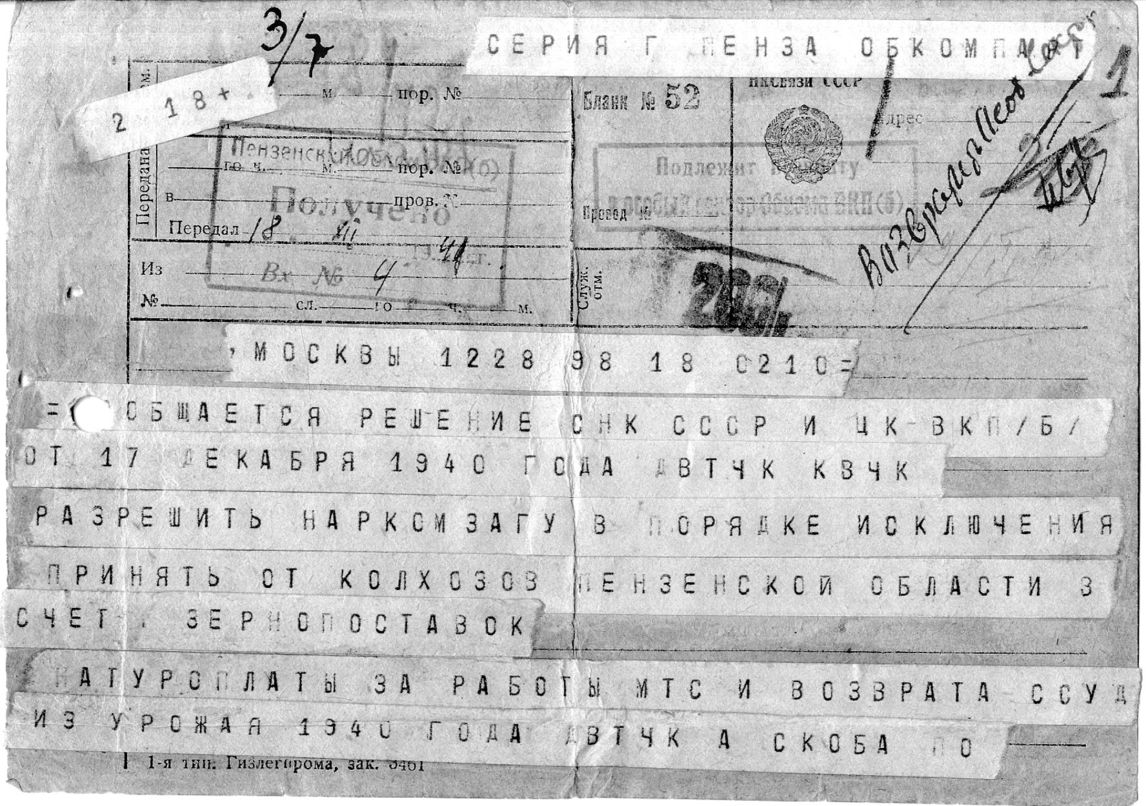 3/7
СЕРИЯ Г ПЕНЗА ОБКОМПАРТ
1
2 18+
м. пор. №
Бланк № 52
НКСвязи СССР
Адрес
Передана
Пензенский
(б)
го ч. м. пор. №
Подлежит
в особый сектор Обкома ВКП(б)
Получено
в пров. №
Провод №
Передал 18 XII
Вх № 4
Из
Служ. отм.
№ сл. го ч. м.
МОСКВЫ 1228 98 18 0210=
= ОБЩАЕТСЯ РЕШЕНИЕ СНК СССР И ЦК ВКП/Б/
ОТ 17 ДЕКАБРЯ 1940 ГОДА ДВТЧК КВЧК
РАЗРЕШИТЬ НАРКОМЗАГУ В ПОРЯДКЕ ИСКЛЮЧЕНИЯ
ПРИНЯТЬ ОТ КОЛХОЗОВ ПЕНЗЕНСКОЙ ОБЛАСТИ В
СЧЕТ ЗЕРНОПОСТАВОК
НАТУРОПЛАТЫ ЗА РАБОТЫ МТС И ВОЗВРАТА ССУД
ИЗ УРОЖАЯ 1940 ГОДА ДВТЧК А СКОБА ПО
1-я тип. Гизлегпрома, зак. 3461